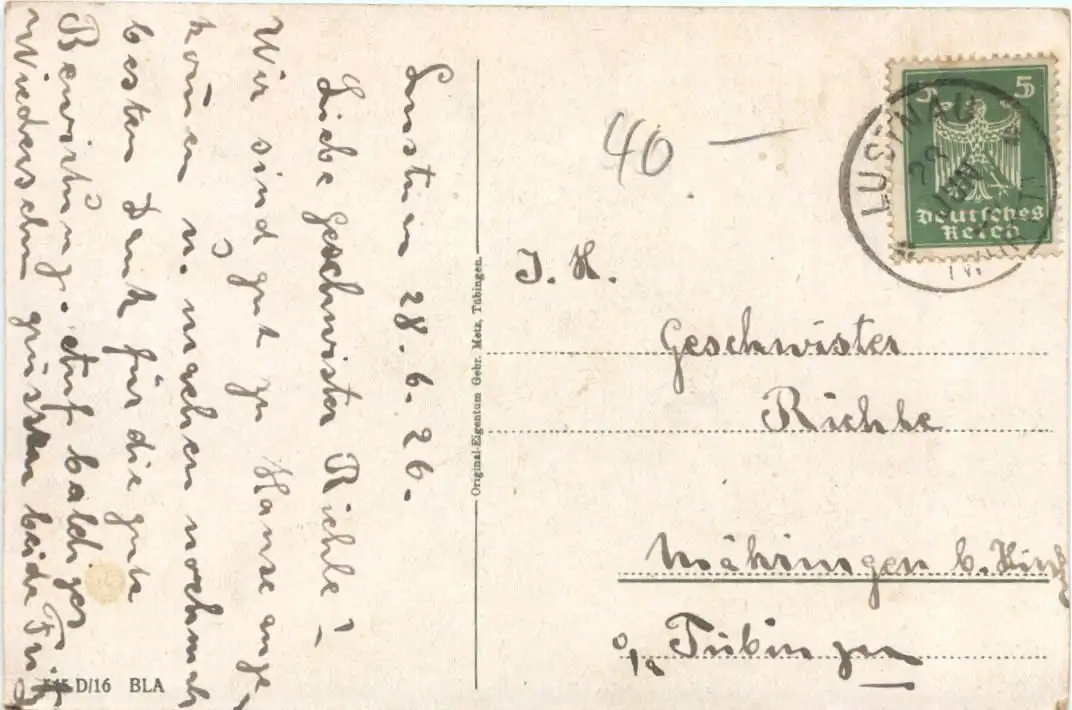 Lustnau 28.6.26.
Liebe Geschwister Richle!
Wir sind gut zu Hause ange-
kom̄en u. machen nochmals
besten Dank für die gute
Bewirtung. Auf baldiges
Wiedersehn grüssen beide
Original-Eigentum Gebr. Metz, Tübingen.
545 D/16 BLA
40 —
5 5
Deutsches
Reich
LUSTNAU
29
JUN
J. H.
Geschwister
Richle
Mähringen b.
o/a Tübingen